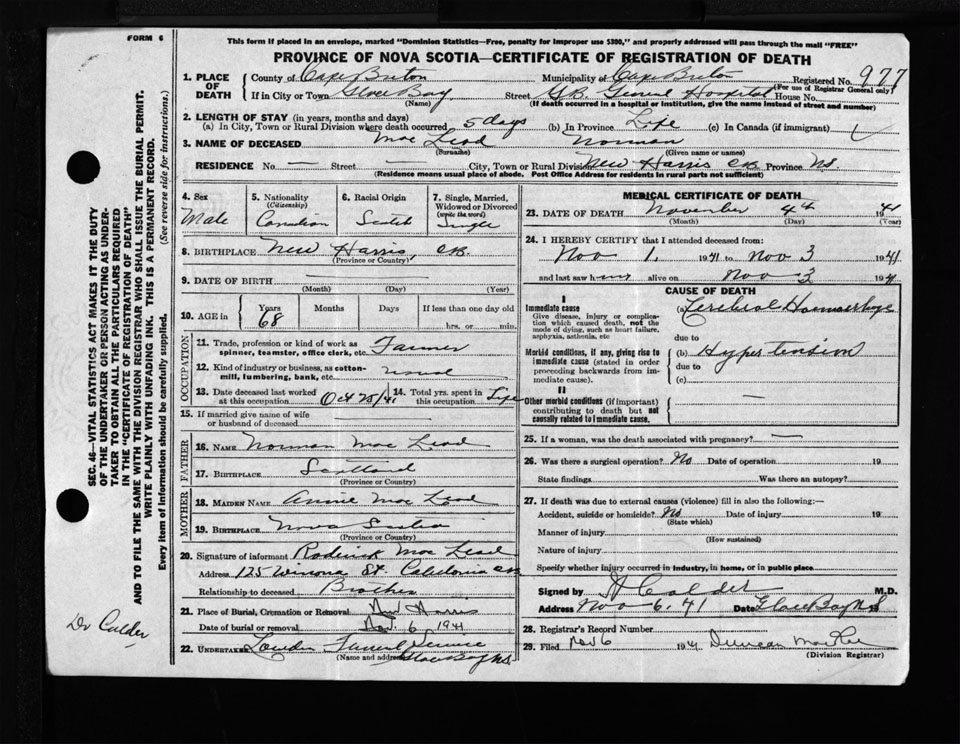 FORM 6
This form if placed in an envelope, marked "Dominion Statistics—Free, penalty for improper use $300," and properly addressed will pass through the mail "FREE"
PROVINCE OF NOVA SCOTIA—CERTIFICATE OF REGISTRATION OF DEATH
1. PLACE OF DEATH County of Cape Breton Municipality of Cape Breton Registered No. 977
(For use of Registrar General only)
If in City or Town Glace Bay Street G.B. General Hospital House No.
(Name) (If death occurred in a hospital or institution, give the name instead of street and number)
2. LENGTH OF STAY (in years, months and days)
(a) In City, Town or Rural Division where death occurred 5 days (b) In Province Life (c) In Canada (if immigrant)
3. NAME OF DECEASED Mac Leod Norman
(Surname) (Given name or names)
RESIDENCE No. — Street — City, Town or Rural Division New Harris CB Province N.S.
(Residence means usual place of abode. Post Office Address for residents in rural parts not sufficient)
4. Sex Male
5. Nationality (Citizenship) Canadian
6. Racial Origin Scotch
7. Single, Married, Widowed or Divorced (write the word) Single
8. BIRTHPLACE New Harris, CB.
(Province or Country)
9. DATE OF BIRTH
(Month) (Day) (Year)
10. AGE in Years 68 Months Days If less than one day old
hrs. or min.
OCCUPATION
11. Trade, profession or kind of work as spinner, teamster, office clerk, etc. Farmer
12. Kind of industry or business, as cotton-mill, lumbering, bank, etc. usual
13. Date deceased last worked at this occupation Oct 25/41 14. Total yrs. spent in this occupation Life
15. If married give name of wife or husband of deceased
FATHER
16. NAME Norman Mac Leod
17. BIRTHPLACE Scotland
(Province or Country)
MOTHER
18. MAIDEN NAME Annie Mac Leod
19. BIRTHPLACE Nova Scotia
(Province or Country)
20. Signature of informant Roderick Mac Leod
Address 125 Winona St. Caledonia CB
Relationship to deceased Brother
21. Place of Burial, Cremation or Removal New Harris
Date of burial or removal Nov. 6 1941
22. UNDERTAKER Funeral Service
(Name and address) Glace Bay N.S.
MEDICAL CERTIFICATE OF DEATH
23. DATE OF DEATH November 4th 1941
(Month) (Day) (Year)
24. I HEREBY CERTIFY that I attended deceased from:
Nov 1. 1941 to Nov 3 1941
and last saw him alive on Nov 3 1941
CAUSE OF DEATH
I
Immediate cause (a) Cerebral Hemorrhage
Give disease, injury or complication which caused death, not the mode of dying, such as heart failure, asphyxia, asthenia, etc
due to
Morbid conditions, if any, giving rise to immediate cause (stated in order proceeding backwards from immediate cause).
(b) Hypertension
due to
(c)
II
Other morbid conditions (if important) contributing to death but not causally related to immediate cause. —
25. If a woman, was the death associated with pregnancy? —
26. Was there a surgical operation? No Date of operation 19
State findings Was there an autopsy?
27. If death was due to external causes (violence) fill in also the following:—
Accident, suicide or homicide? No Date of injury 19
(State which)
Manner of injury
(How sustained)
Nature of injury
Specify whether injury occurred in industry, in home, or in public place
Signed by A Calder M.D.
Address Nov 6. 41 Date Glace Bay NS
28. Registrar's Record Number
29. Filed Nov 6 1941 Duncan
(Division Registrar)
SEC. 46—VITAL STATISTICS ACT MAKES IT THE DUTY
OF THE UNDERTAKER OR PERSON ACTING AS UNDER-
TAKER TO OBTAIN ALL THE PARTICULARS REQUIRED
IN THE "CERTIFICATE OF REGISTRATION OF DEATH"
AND TO FILE THE SAME WITH THE DIVISION REGISTRAR WHO SHALL ISSUE THE BURIAL PERMIT.
WRITE PLAINLY WITH UNFADING INK. THIS IS A PERMANENT RECORD.
Every item of information should be carefully supplied. (See reverse side for instructions.)
Dr Calder